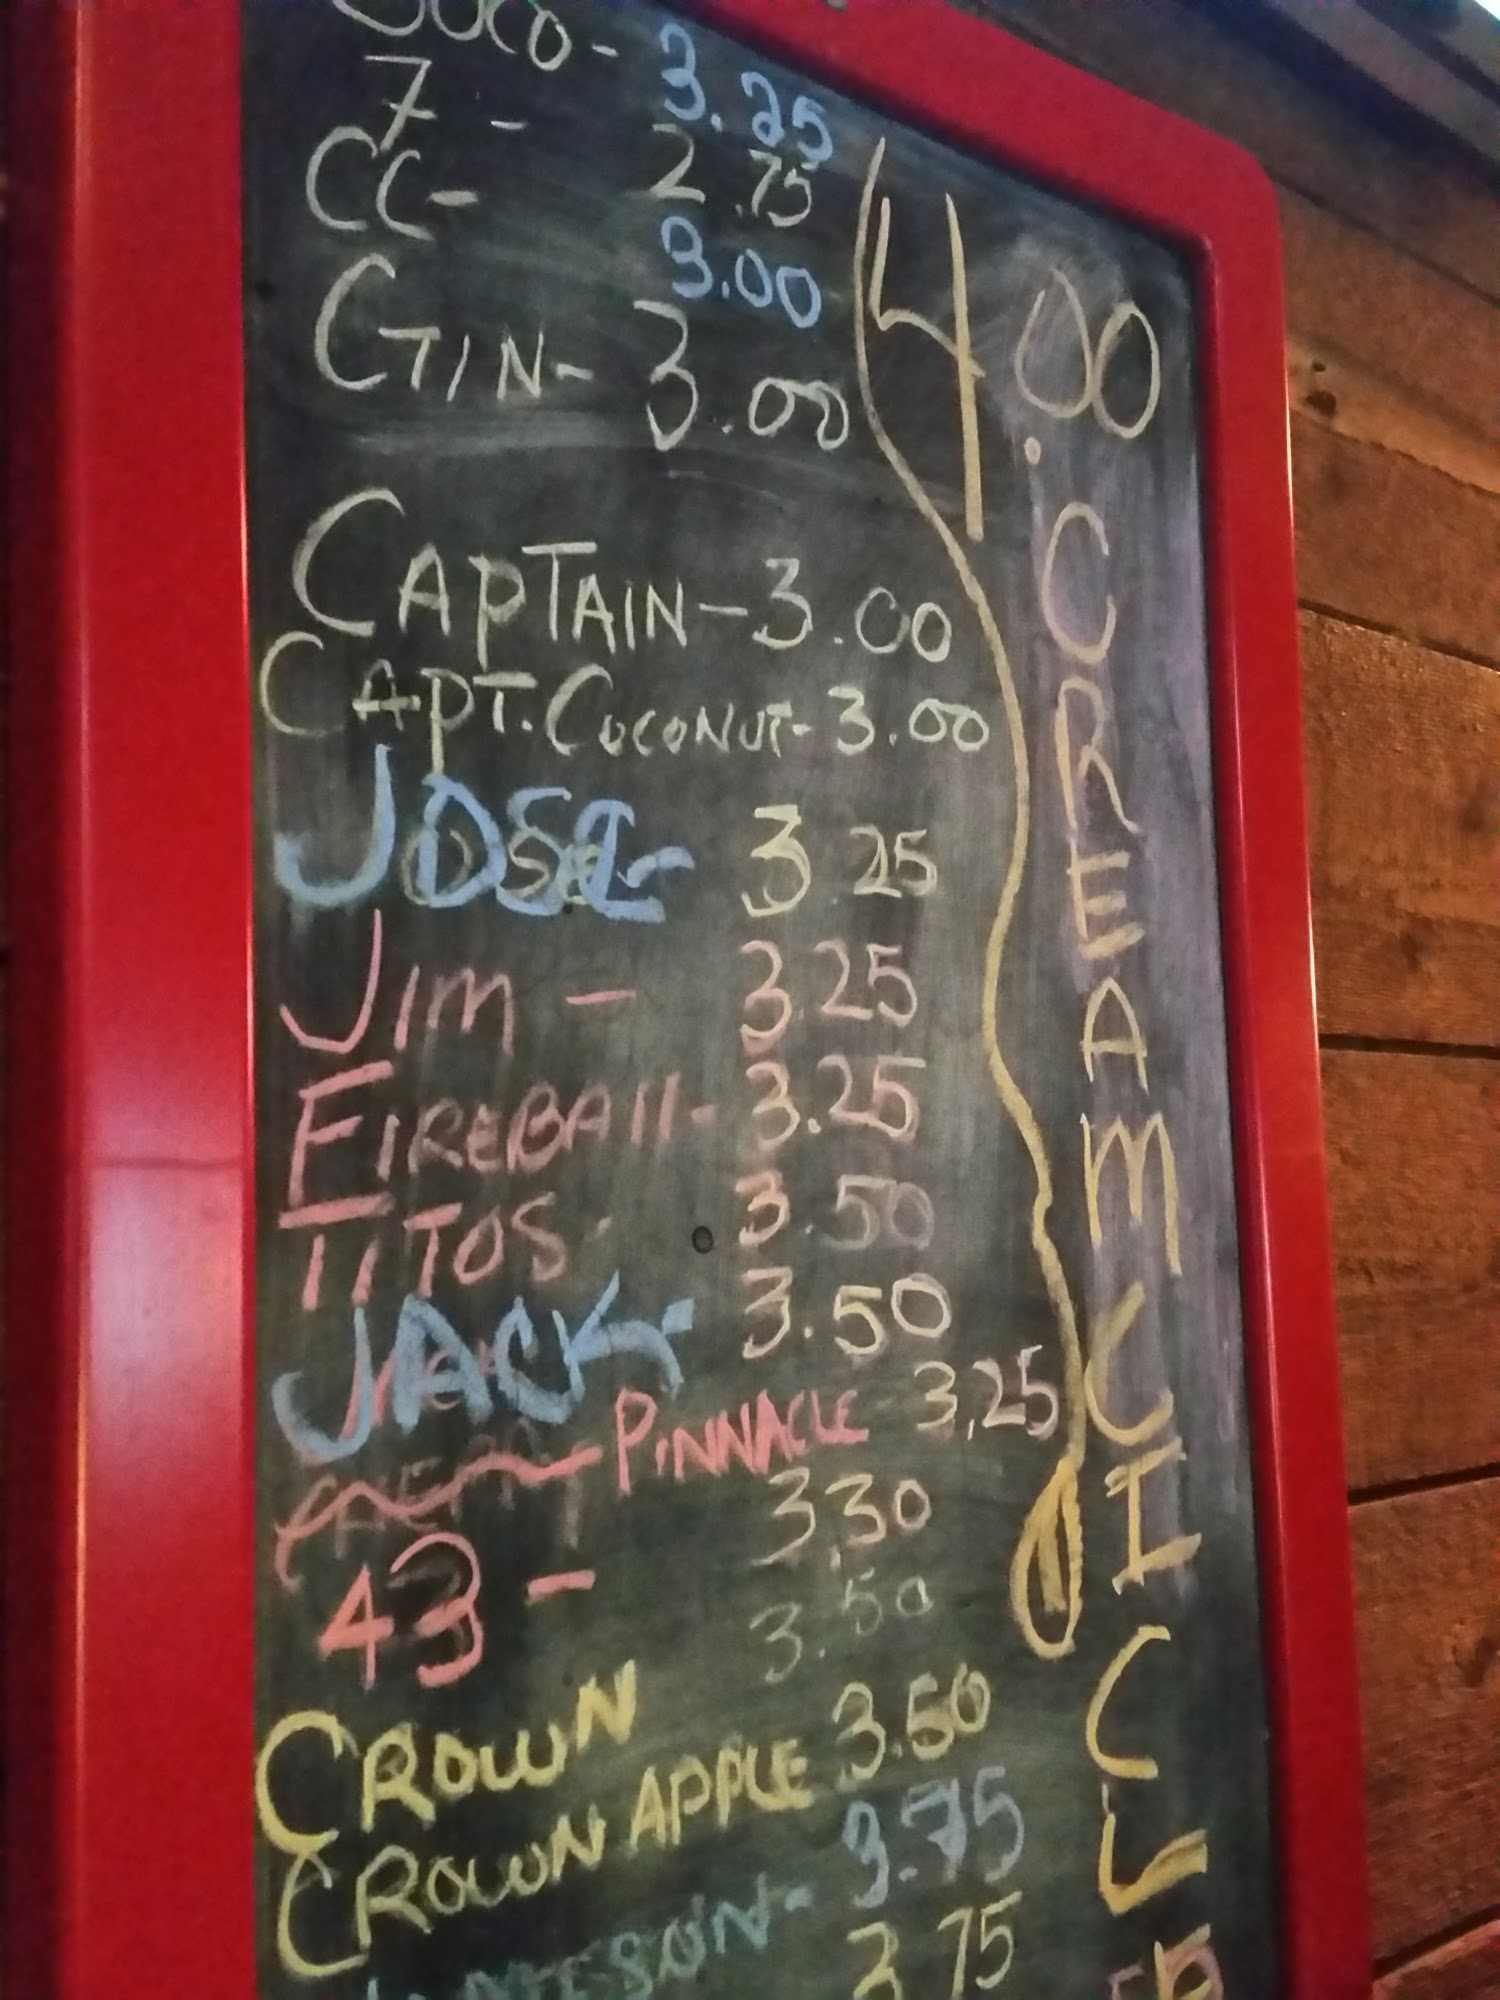 SOCO - 3.25
7 - 2.75
CC - 3.00
GIN - 3.00
CAPTAIN - 3.00
CAPT. COCONUT - 3.00
JOSE - 3.25
JIM - 3.25
FIREBALL - 3.25
TITOS - 3.50
JACK - 3.50
PINNACLE 3.25
43 - 3.30
3.50
CROWN 3.50
CROWN APPLE 3.75
3.75
4.00
CREAMCICLES